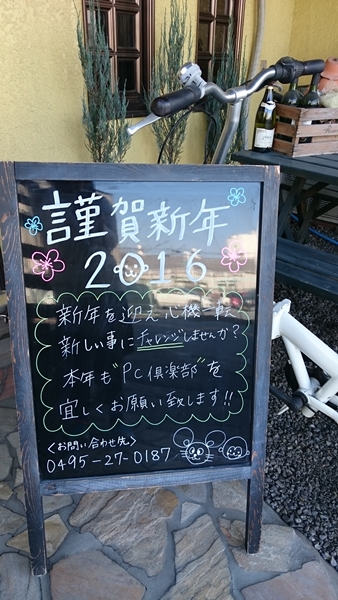 謹賀新年
2016
新年を迎え心機一転
新しい事にチャレンジしませんか?
本年も"PC倶楽部"を
宜しくお願い致します!!
<お問い合わせ先>
0495-27-0187